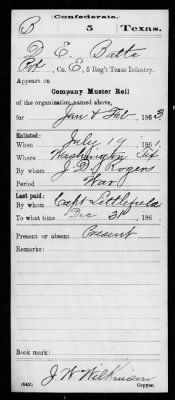 Confederate.
B 5 Texas.
D. E. Batts
Pvt, Co. E, 5 Reg't Texas Infantry.
Appears on
Company Muster Roll
of the organization named above,
for Jan & Feb, 1863.
Enlisted:
When July 19, 1861.
Where Washington Tex
By whom J. D. Rogers
Period War
Last paid:
By whom Capt Littlefield
To what time Dec 31, 186
Present or absent Present
Remarks:
Book mark:
J W Wilkinson
(642) Copyist.